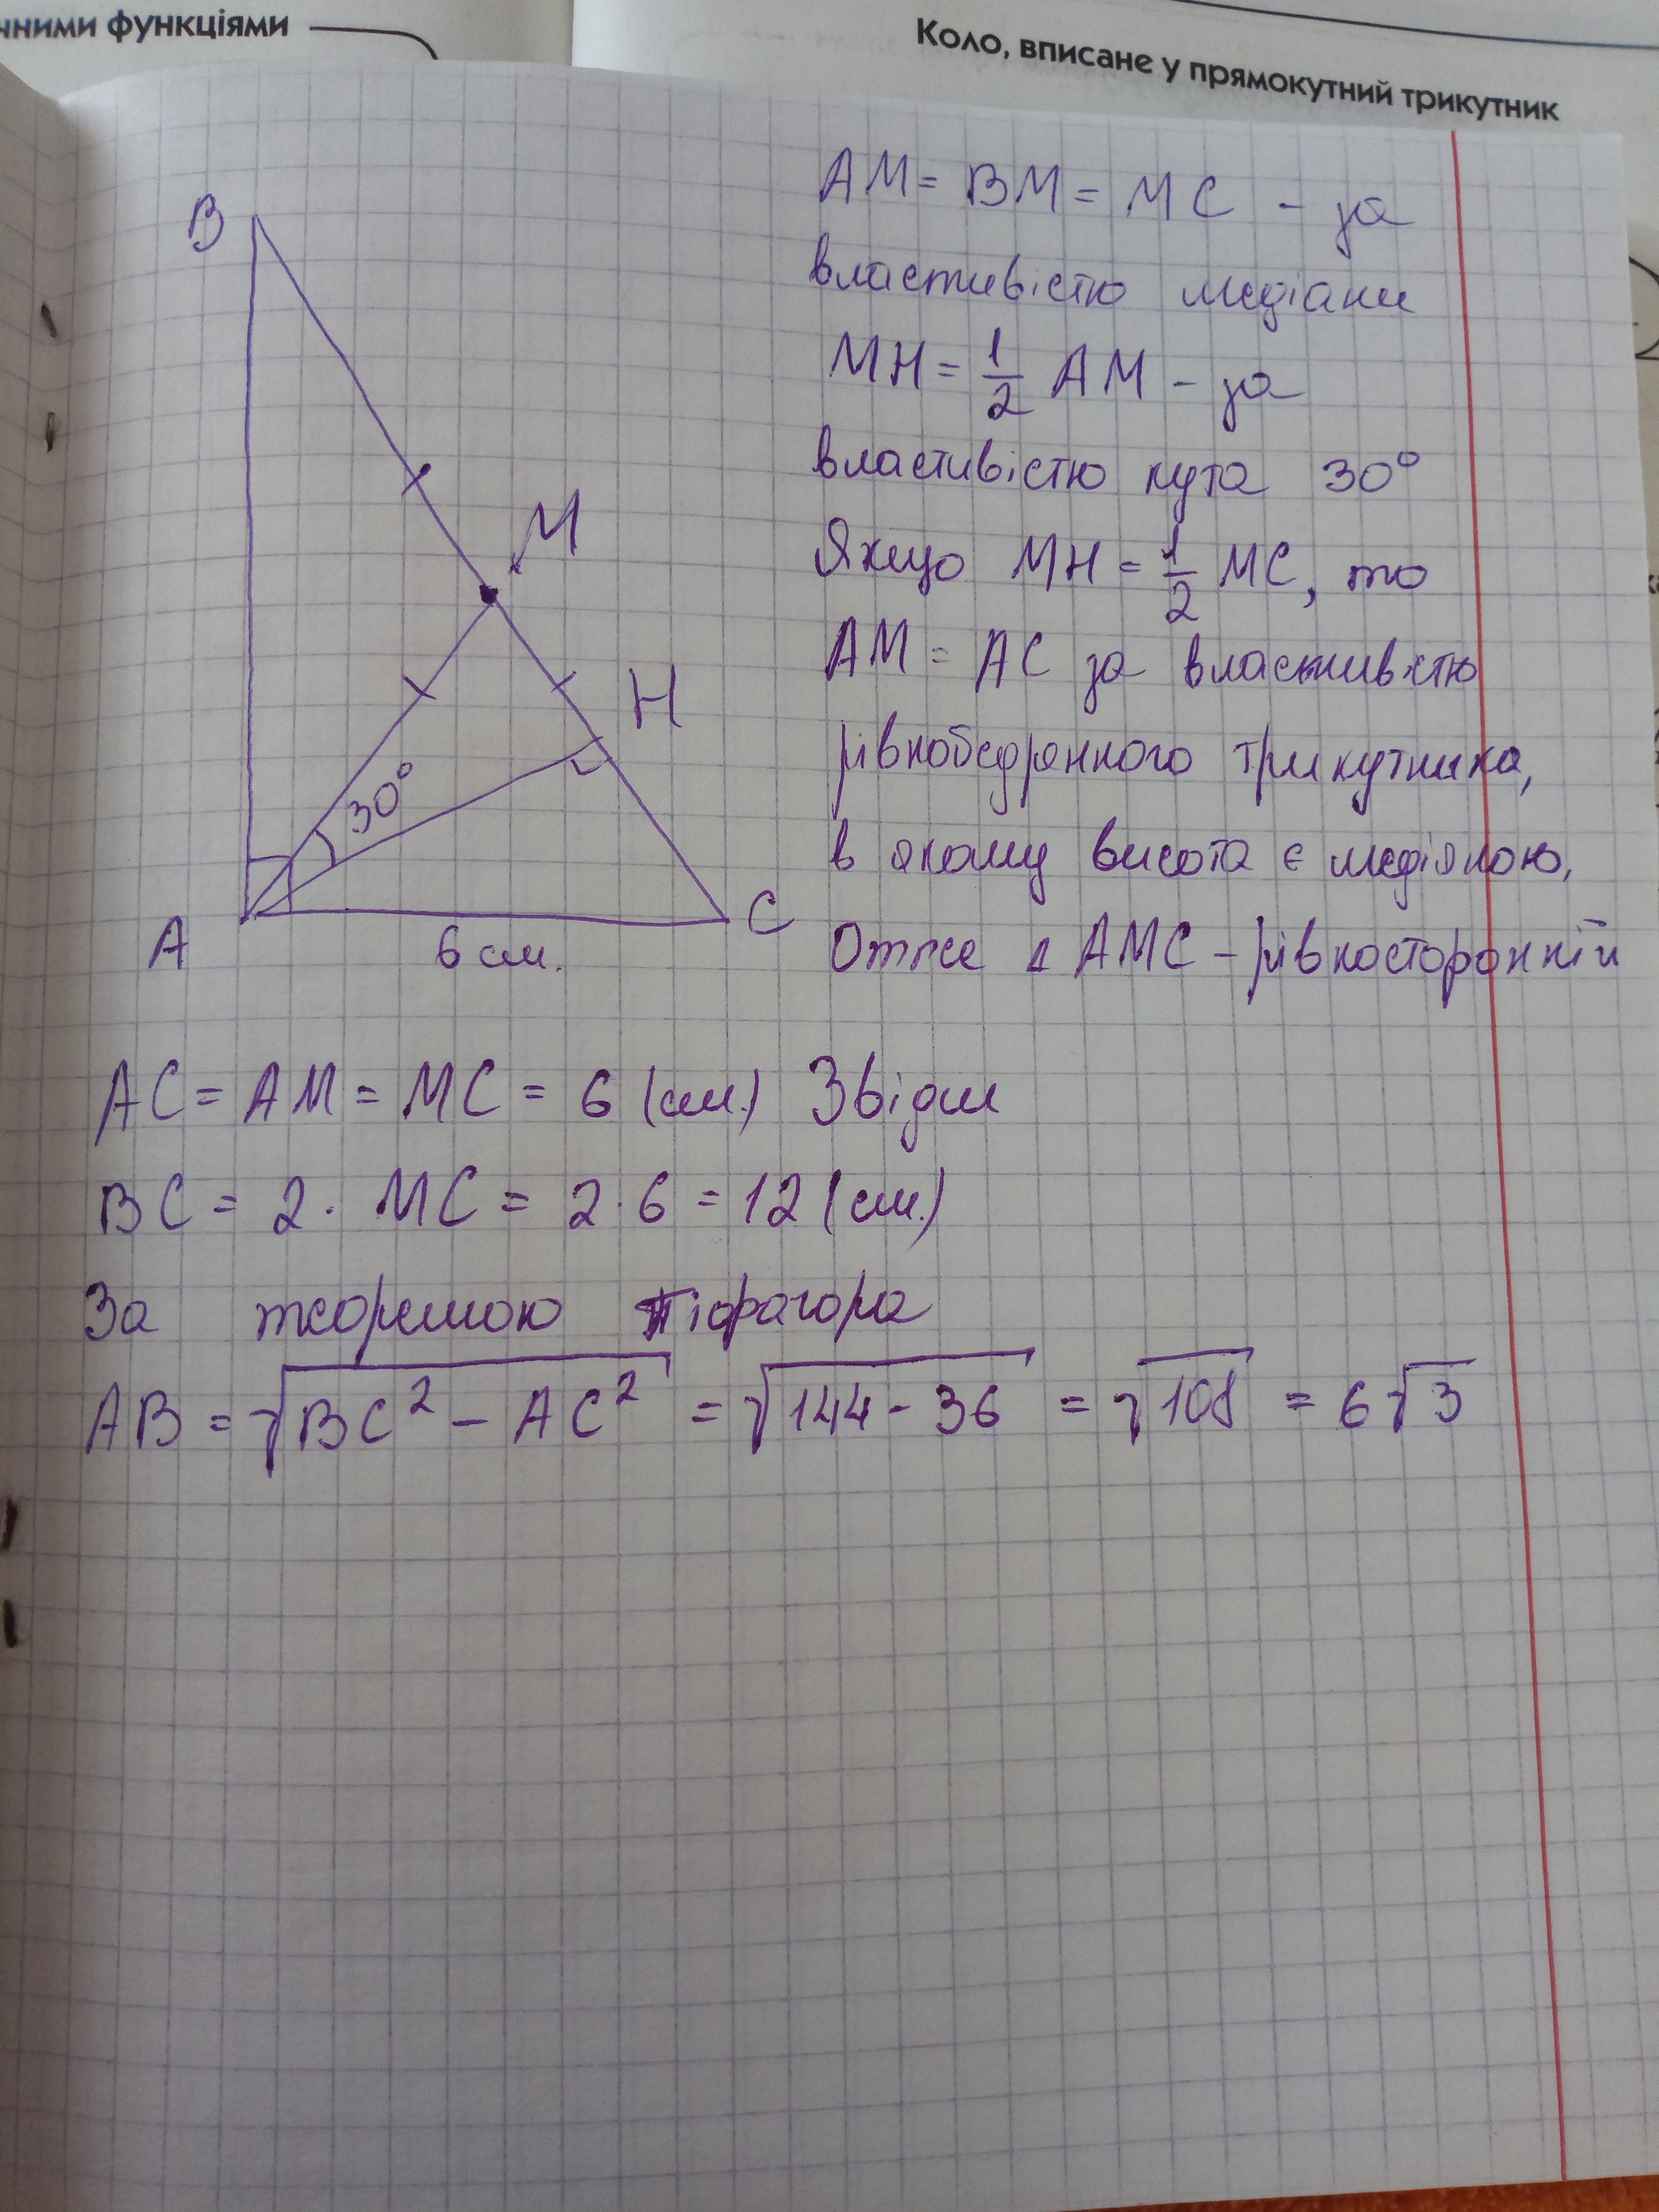 чними функціями
Коло, вписане у прямокутний трикутник
AM = BM = MC - за
властивістю медіани
MH = 1/2 AM - за
властивістю кута 30°
Якщо MH = 1/2 MC, то
AM = AC за властивістю
рівнобедренного трикутника,
в якому висота є медіаною,
Отже Δ AMC - рівносторонній
B
M
H
30°
A
C
6 см.
AC = AM = MC = 6 (см.) Звідси
BC = 2 · MC = 2 · 6 = 12 (см.)
За теоремою Піфагора
AB = √BC² - AC² = √144 - 36 = √108 = 6√3